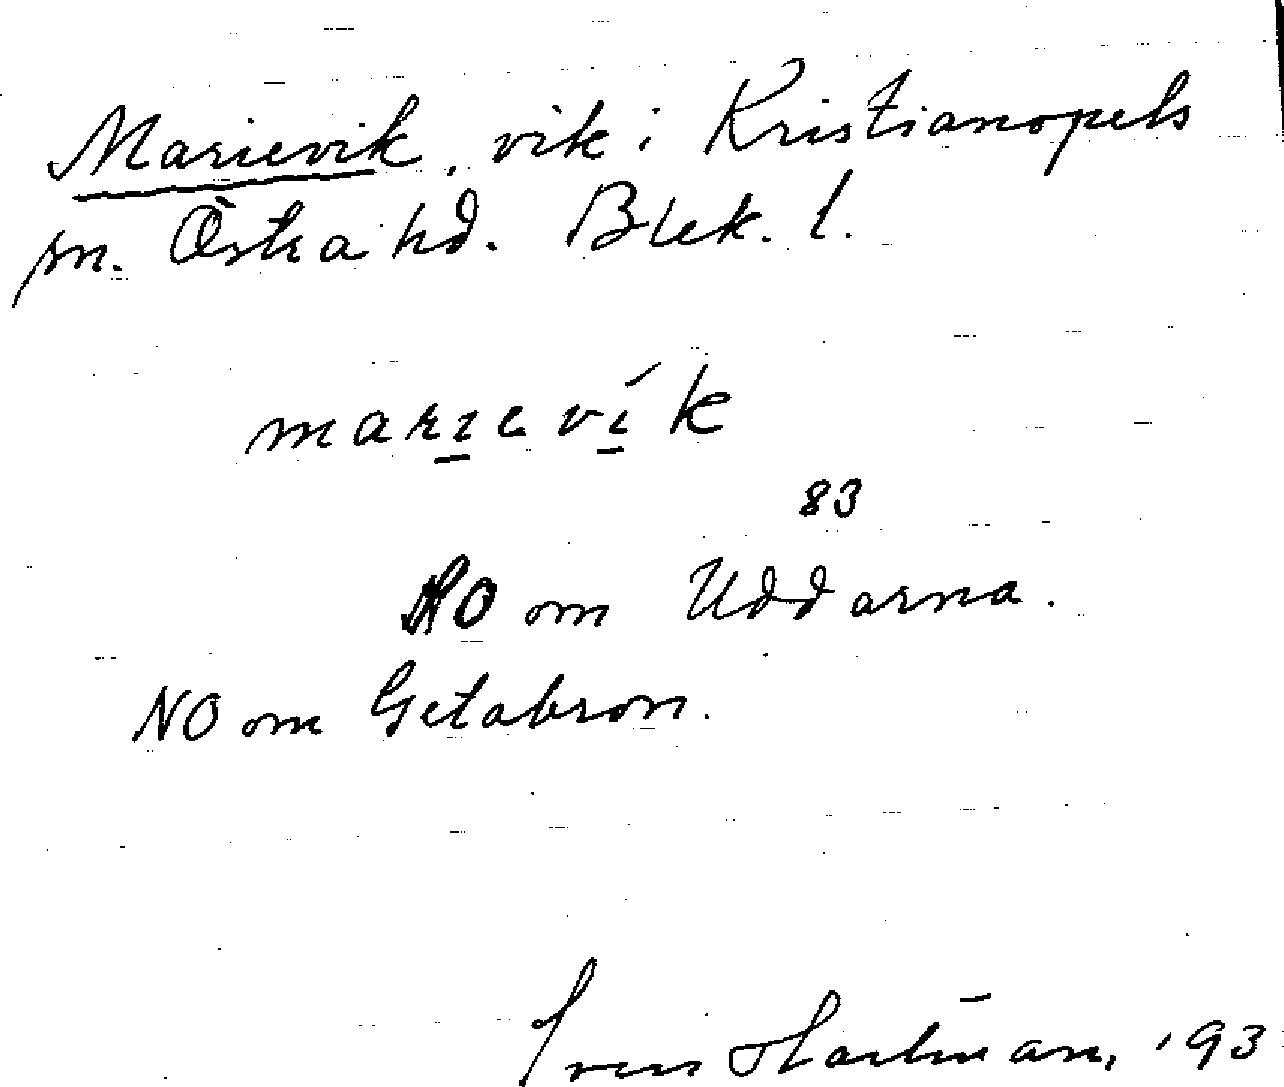 Marievik, vik i Kristianopels
sn. Östra hd. Blek. l.
marievík
83
NO om Uddarna.
NO om Getabron.
Sven Hartman, '93